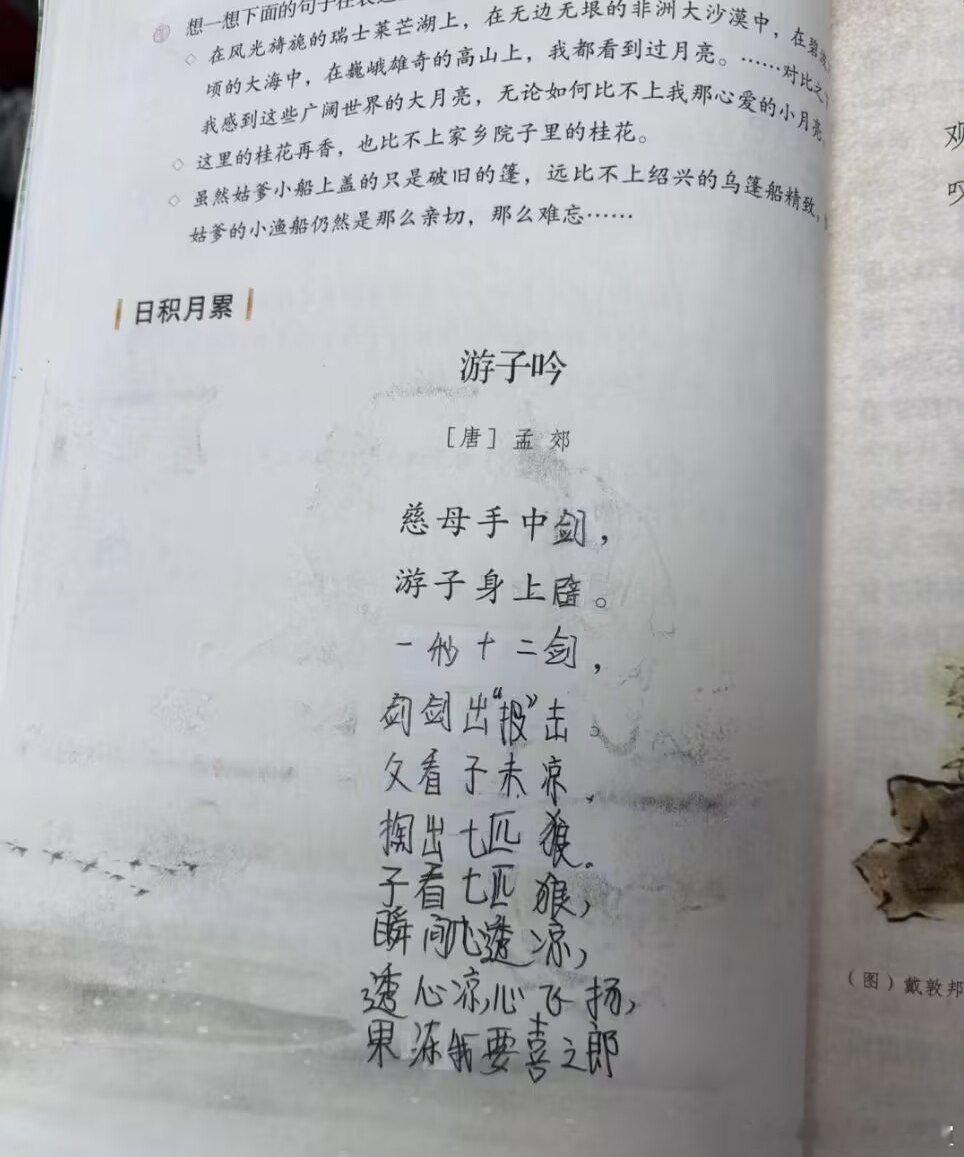 想一想下面的句子在表达
◇ 在风光旖旎的瑞士莱芒湖上，在无边无垠的非洲大沙漠中，在碧波
顷的大海中，在巍峨雄奇的高山上，我都看到过月亮。……对比之下
我感到这些广阔世界的大月亮，无论如何比不上我那心爱的小月亮
◇ 这里的桂花再香，也比不上家乡院子里的桂花。
◇ 虽然姑爹小船上盖的只是破旧的篷，远比不上绍兴的乌篷船精致，
姑爹的小渔船仍然是那么亲切，那么难忘……
日积月累
游子吟
［唐］孟郊
慈母手中剑，
游子身上劈。
一秒十二剑，
剑剑出“报”击。
父看子未凉，
掏出七匹狼。
子看七匹狼，
瞬间心透凉，
透心凉，心飞扬，
果冻我要喜之郎
观
叹
（图）戴敦邦